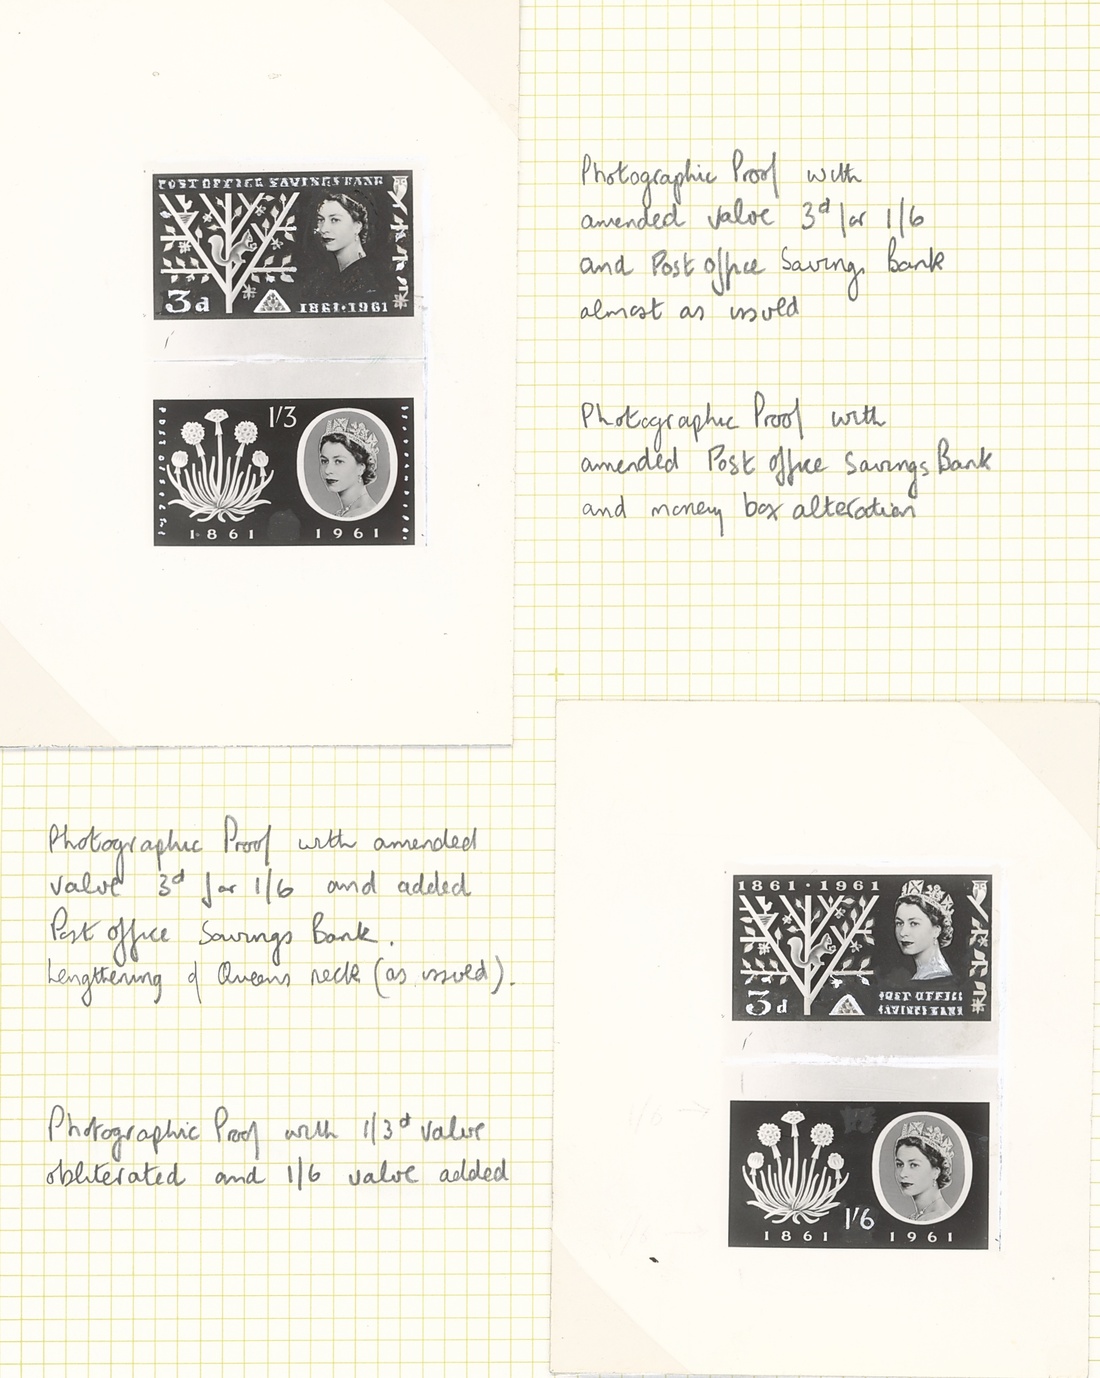 POST OFFICE SAVINGS BANK
3d
1861·1961
1/3
1861 1961
Photographic Proof with
amended value 3d for 1/6
and Post Office Savings Bank
almost as issued
Photographic Proof with
amended Post Office Savings Bank
and money box alteration
Photographic Proof with amended
value 3d for 1/6 and added
Post Office Savings Bank.
Lengthening of Queens neck (as issued).
Photographic Proof with 1/3d value
obliterated and 1/6 value added
1861·1961
3d
POST OFFICE
SAVINGS BANK
1/6
1861 1961